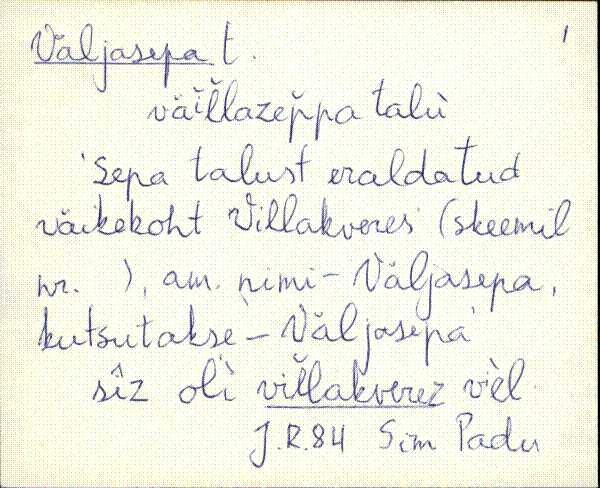 Väljasepa t. 1
väĭl̆lazep̆pa talù
Sepa talust eraldatud
väikekoht Villakveres (skeemil
nr. ), am. nimi - Väljasepa,
kutsutakse - Väljasepa
sîz olì vil̆lak̆verez vèl
J.R.84 Sim Padu